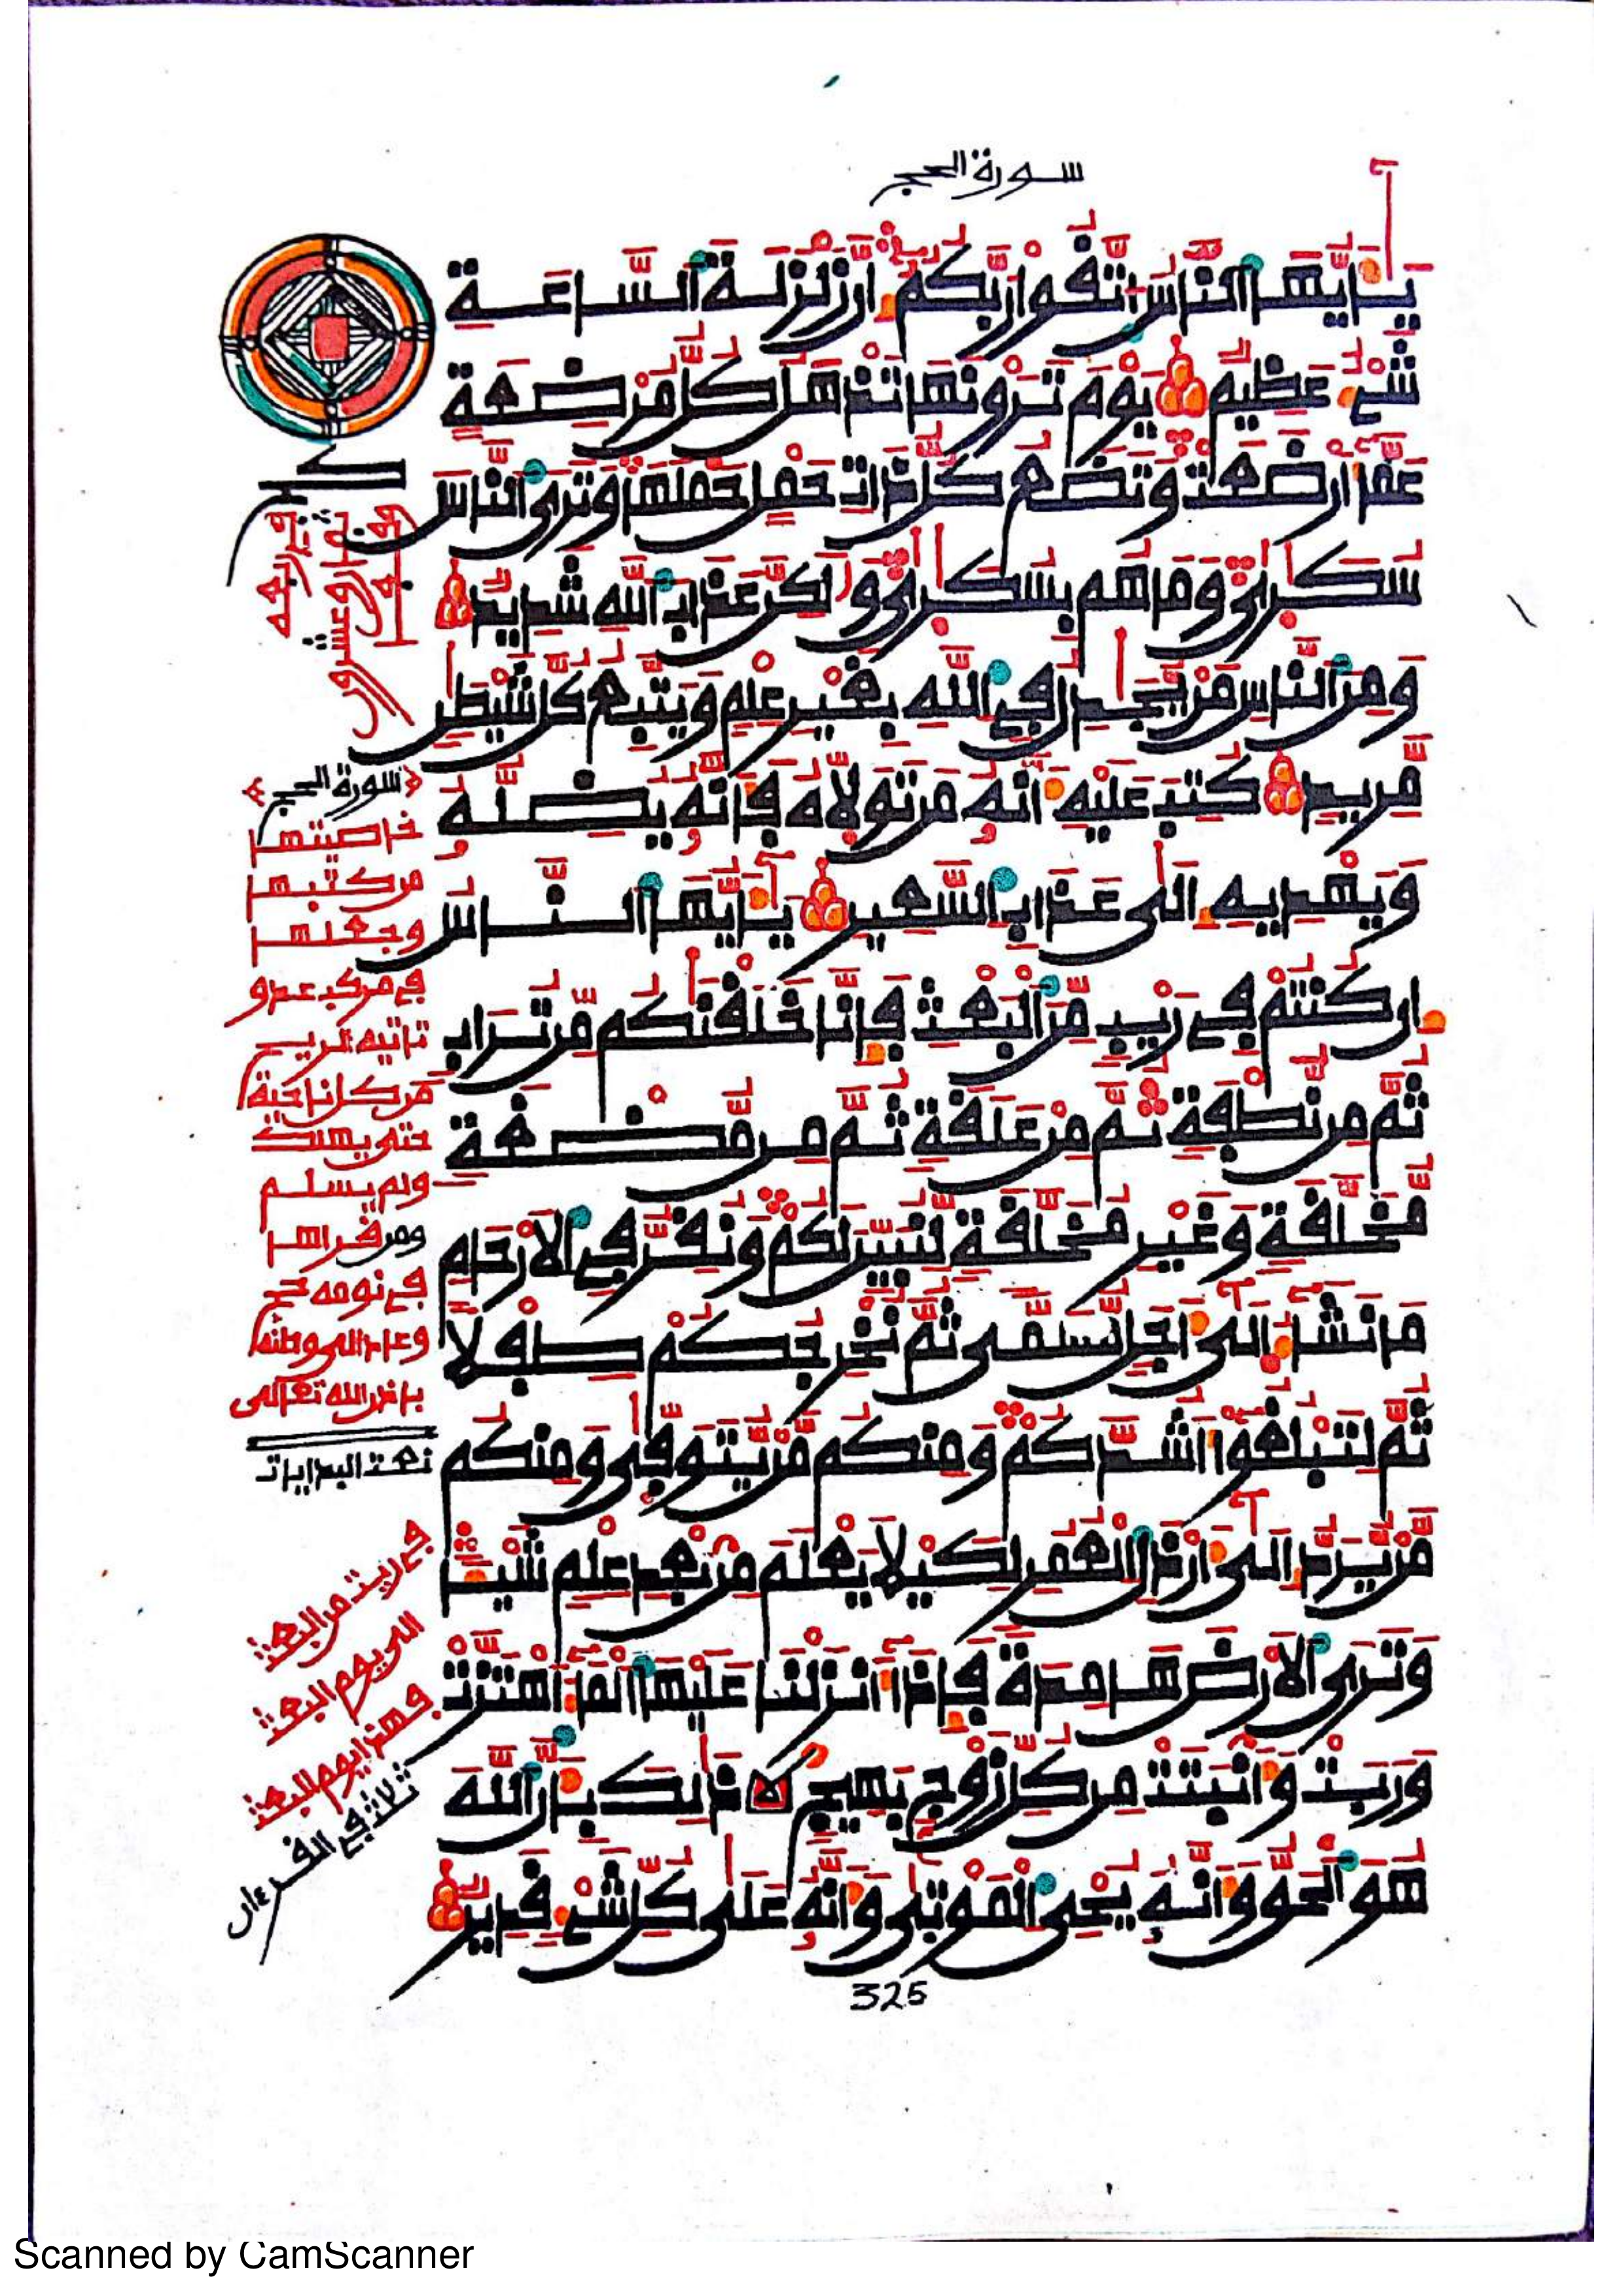 سورة الحج
يَٰأَيُّهَا اَ۬لنَّاسُ اُ۪تَّقُواْ رَبَّكُمُۥٓ إِنَّ زَلْزَلَةَ اَ۬لسَّاعَةِ
شَےْءٌ عَظِيمٌ يَوْمَ تَرَوْنَهَا تَذْهَلُ كُلُّ مُرْضِعَةٍ
عَمَّآ أَرْضَعَتْ وَتَضَعُ كُلُّ ذَاتِ حَمْلٍ حَمْلَهَا وَتَرَى اَ۬لنَّاسَ
سُكَٰرَىٰ وَمَا هُم بِسُكَٰرَىٰ وَلَٰكِنَّ عَذَابَ اَ۬للَّهِ شَدِيدٌ
وَمِنَ اَ۬لنَّاسِ مَنْ يُّجَٰدِلُ فِے اِ۬للَّهِ بِغَيْرِ عِلْمٍ وَيَتَّبِعُ كُلَّ شَيْطَٰنٍ
مَّرِيدٍ كُتِبَ عَلَيْهِ أَنَّهُۥ مَن تَوَلَّاهُ فَأَنَّهُۥ يُضِلُّهُۥ
وَيَهْدِيهِ إِلَىٰ عَذَابِ اِ۬لسَّعِيرِ يَٰأَيُّهَا اَ۬لنَّاسُ
إِن كُنتُمْ فِے رَيْبٍ مِّنَ اَ۬لْبَعْثِ فَإِنَّا خَلَقْنَٰكُم مِّن تُرَابٍ
ثُمَّ مِن نُّطْفَةٍ ثُمَّ مِنْ عَلَقَةٍ ثُمَّ مِن مُّضْغَةٍ
مُّخَلَّقَةٍ وَغَيْرِ مُخَلَّقَةٍ لِّنُبَيِّنَ لَكُمْ وَنُقِرُّ فِے اِ۬لْأَرْحَامِ
مَا نَشَآءُ اِ۪لَىٰٓ أَجَلٍ مُّسَمًّى ثُمَّ نُخْرِجُكُمْ طِفْلًا
ثُمَّ لِتَبْلُغُوٓاْ أَشُدَّكُمْ وَمِنكُم مَّنْ يُّتَوَفَّىٰ وَمِنكُم
مَّنْ يُّرَدُّ إِلَىٰٓ أَرْذَلِ اِ۬لْعُمُرِ لِكَيْلَا يَعْلَمَ مِنۢ بَعْدِ عِلْمٍ شَيْـٔاً
وَتَرَى اَ۬لْأَرْضَ هَامِدَةً فَإِذَآ أَنزَلْنَا عَلَيْهَا اَ۬لْمَآءَ اَ۪هْتَزَّتْ
وَرَبَتْ وَأَنۢبَتَتْ مِن كُلِّ زَوْجٍ بَهِيجٍ ذَٰلِكَ بِأَنَّ اَ۬للَّهَ
هُوَ اَ۬لْحَقُّ وَأَنَّهُۥ يُحْيِ اِ۬لْمَوْتَىٰ وَأَنَّهُۥ عَلَىٰ كُلِّ شَےْءٍ قَدِيرٌ
325
سورة الحج
خاصيتها
من كتبها
وجعلها
في مركب عدو
تاتيه الريح
من كل ناحية
حتى يهلك
ولم يسلم
ومن قراها
في نومه حج
وعاد الى وطنه
باذن الله تعالى
نعت البدايات
في ريب من البعث
الى يوم البعث
فهذا يوم البعث
ثلاث في القرءان
Scanned by CamScanner